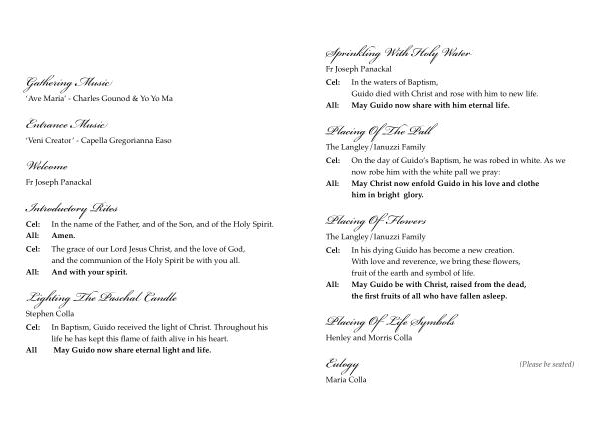 Gathering Music
'Ave Maria' - Charles Gounod & Yo Yo Ma
Entrance Music
'Veni Creator' - Capella Gregorianna Easo
Welcome
Fr Joseph Panackal
Introductory Rites
Cel: In the name of the Father, and of the Son, and of the Holy Spirit.
All: Amen.
Cel: The grace of our Lord Jesus Christ, and the love of God,
and the communion of the Holy Spirit be with you all.
All: And with your spirit.
Lighting The Paschal Candle
Stephen Colla
Cel: In Baptism, Guido received the light of Christ. Throughout his
life he has kept this flame of faith alive in his heart.
All May Guido now share eternal light and life.
Sprinkling With Holy Water
Fr Joseph Panackal
Cel: In the waters of Baptism,
Guido died with Christ and rose with him to new life.
All: May Guido now share with him eternal life.
Placing Of The Pall
The Langley/Ianuzzi Family
Cel: On the day of Guido's Baptism, he was robed in white. As we
now robe him with the white pall we pray:
All: May Christ now enfold Guido in his love and clothe
him in bright glory.
Placing Of Flowers
The Langley/Ianuzzi Family
Cel: In his dying Guido has become a new creation.
With love and reverence, we bring these flowers,
fruit of the earth and symbol of life.
All: May Guido be with Christ, raised from the dead,
the first fruits of all who have fallen asleep.
Placing Of Life Symbols
Henley and Morris Colla
Eulogy (Please be seated)
Maria Colla